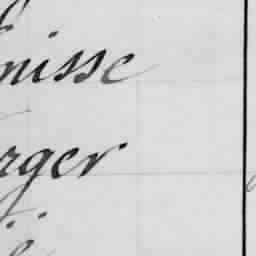 nisse
rger